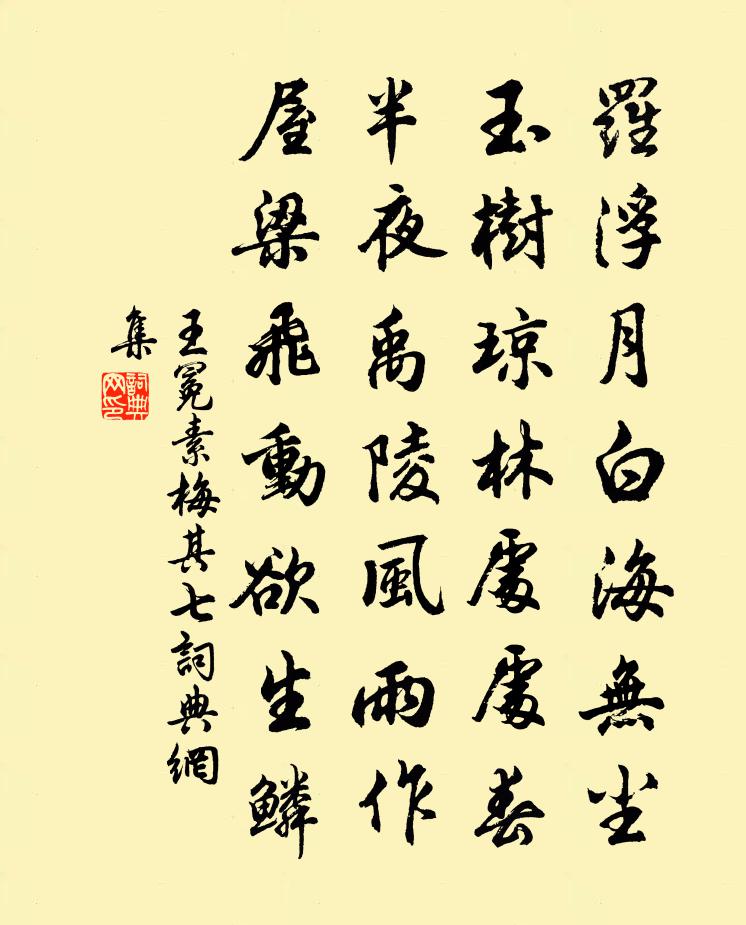 羅浮月白海無塵
玉樹瓊林處處春
半夜禹陵風雨作
屋梁飛動欲生鱗
王冕素梅其七詞典網
集
詞典
网印